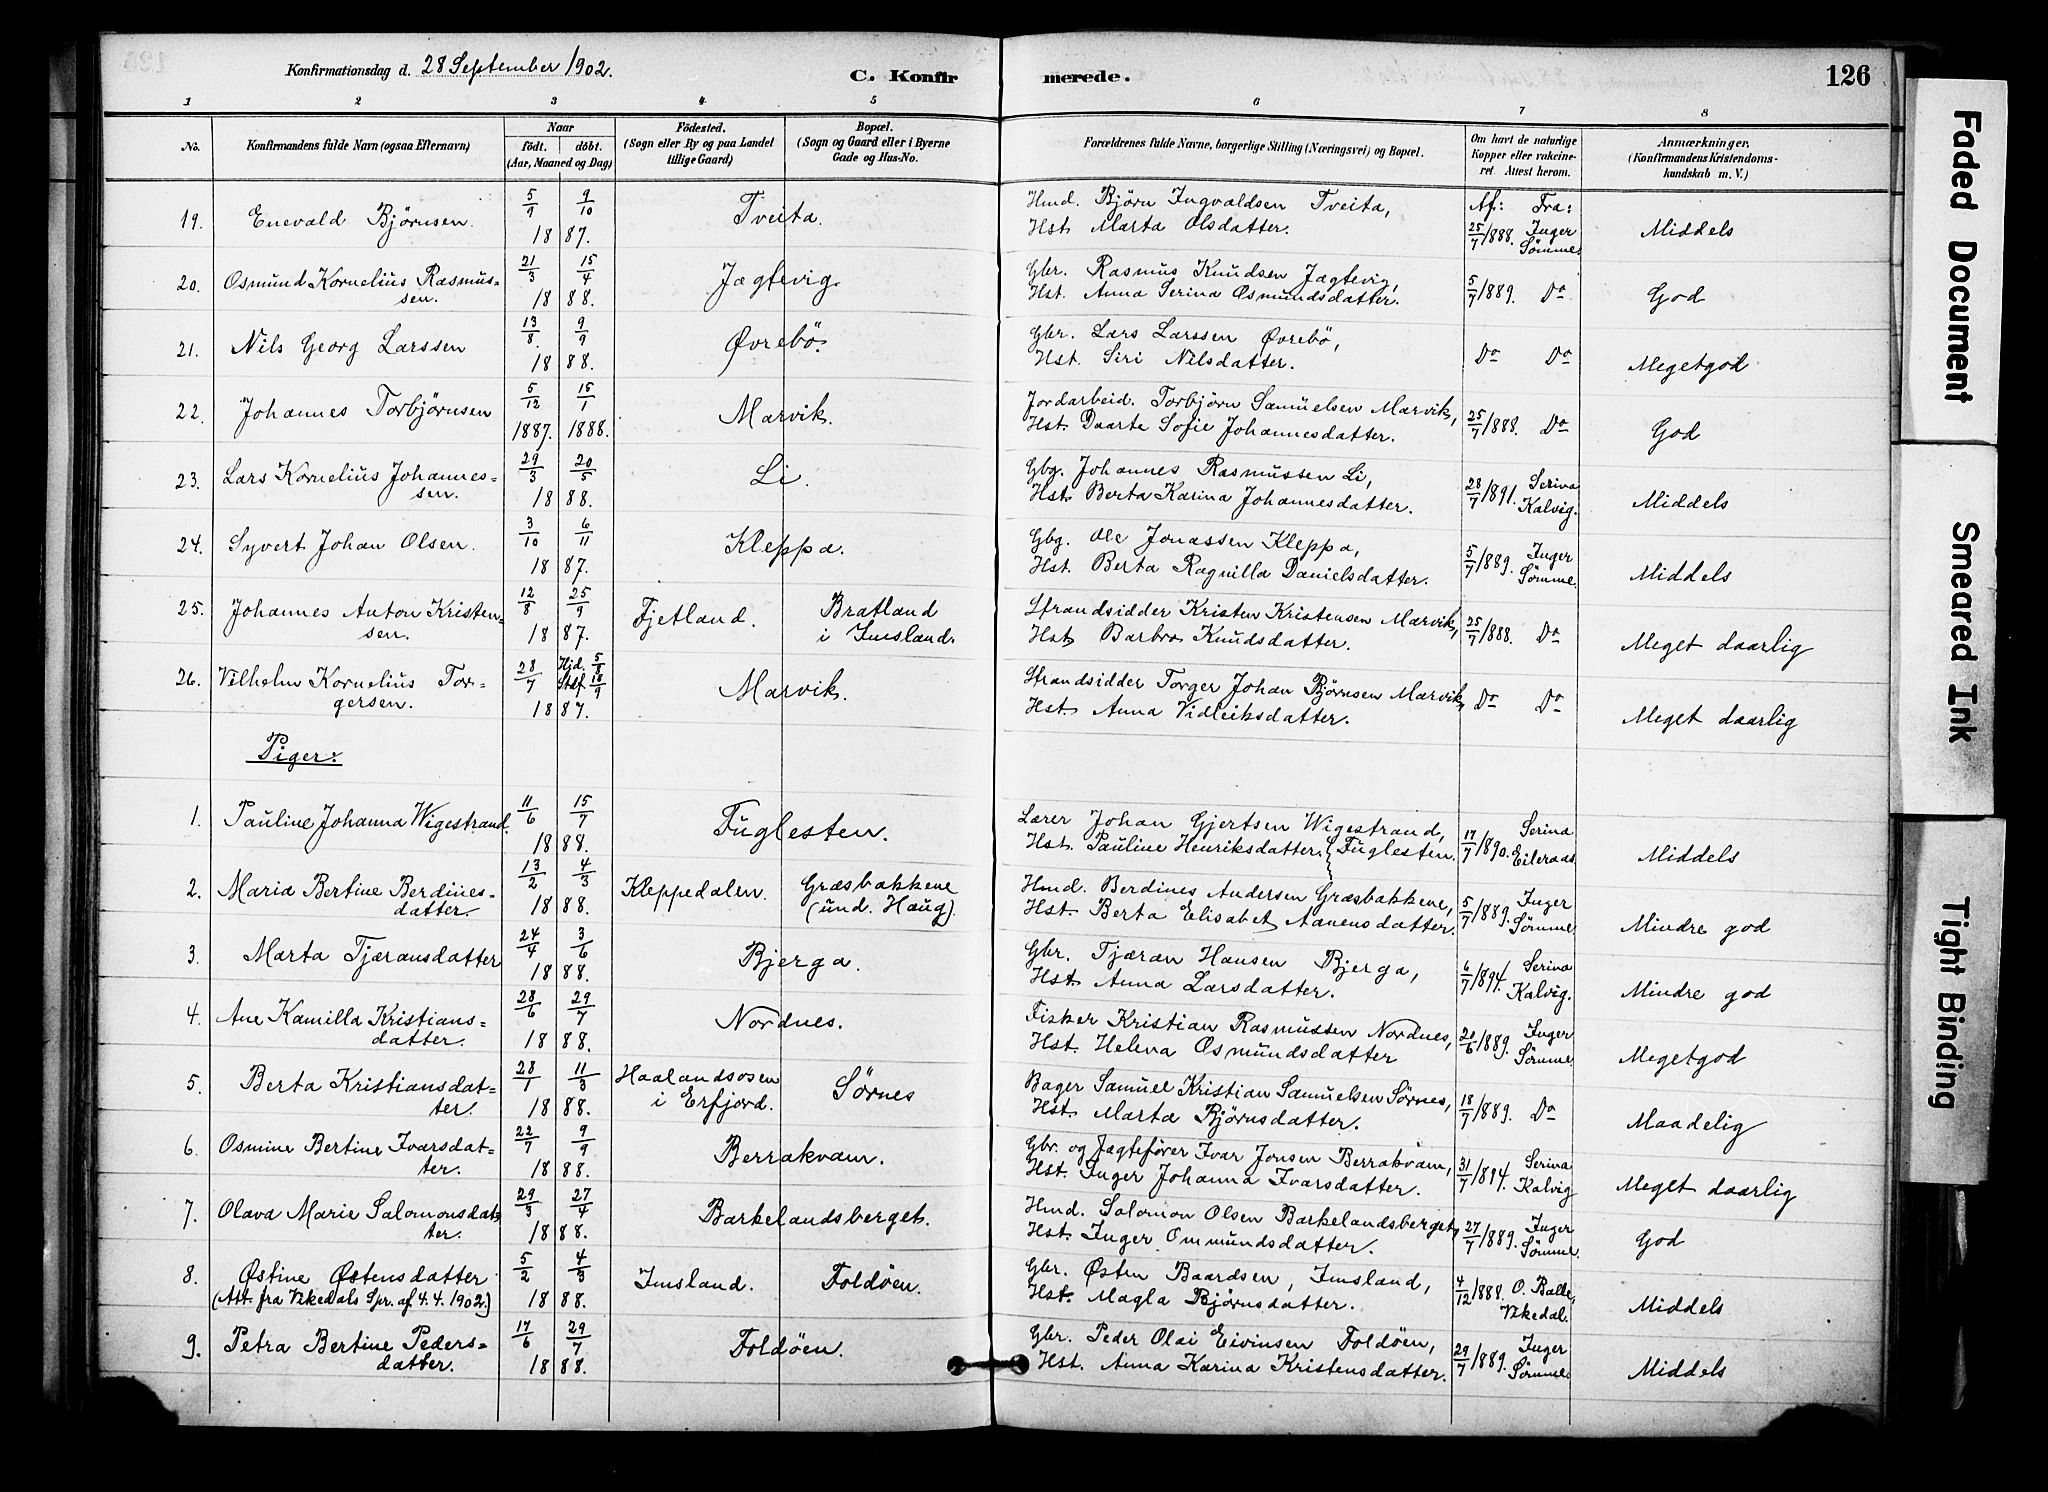 Konfirmationsdag d. 28 September 1902.
C. Konfir merede. 126
1 2 3 4 5 6 7 8
No.
Konfirmandens fulde Navn (ogsaa Efternavn)
Naar
födt. döbt.
(Aar, Maaned og Dag)
Födested.
(Sogn eller By og paa Landet
tillige Gaard)
Bopæl.
(Sogn og Gaard eller i Byerne
Gade og Hus-No.
Forældrenes fulde Navne, borgerlige Stilling (Næringsvei) og Bopæl.
Om havt de naturlige
Kopper eller vakcine-
ret. Attest herom.
Anmærkninger,
(Konfirmandens Kristendoms-
kundskab m. V.)
19. Enevald Björnsen. 5/9 9/10 1887. Tveita. Hmd. Björn Ingvaldsen Tveita, Af: Fra:
Hst. Marta Olsdatter. 25/7 1888. Inger Sömme Middels
20. Osmund Kornelius Rasmus= 21/3 15/4 Jægtevig. Gbr. Rasmus Knudsen Jægtevig,
sen. 1888. Hst. Anna Serina Osmundsdatter. 5/7 1889. Do God
21. Nils Georg Larssen 13/8 9/9 1888. Øvrebö. Gbr. Lars Larssen Øvrebö,
Hst. Siri Nilsdatter. Do Do Megetgod
22. Johannes Torbjörnsen 5/12 15/1 1887. 1888. Marvik. Jordarbeid. Torbjörn Samuelsen Marvik,
Hst. Daarte Sofie Johannesdatter. 25/7 1888. Do God
23. Lars Kornelius Johannes= 29/3 20/5 Li. Gbg. Johannes Rasmussen Li,
sen. 1888. Hst. Berta Karina Johannesdatter. 28/7 1891. Serina Kalvig. Middels
24. Syvert Johan Olsen. 3/10 6/11 1887. Kleppa. Gbg. Ole Jonassen Kleppa,
Hst. Berta Ragnilla Danielsdatter. 5/7 1889. Inger Sömme. Middels
25. Johannes Anton Kristen= 12/8 25/9 Fjetland. Bratland Strandsidder Kristen Kristensen Marvik,
sen. 1887. i Imsland. Hst. Barbro Knudsdatter. 25/7 1888. Do Meget daarlig
26. Vilhelm Kornelius Tor= 28/7 Hjd. 5/8 Stdf. 18/9 Marvik. Strandsidder Torger Johan Björnsen Marvik,
gersen. 1887. Hst. Anna Vidleiksdatter. Do Do Meget daarlig
Piger:
1. Pauline Johanna Wigestrand. 11/6 15/7 1888. Fuglesten. Lærer Johan Gjertsen Wigestrand,
Hst. Pauline Henriksdatter. Fuglesten. 17/7 1890. Serina Eileraas. Middels
2. Maria Bertine Berdines= 13/2 4/3 Kleppedalen. Græsbakkene Hmd. Berdines Andersen Græsbakkene,
datter. 1888. (und. Haug). Hst. Berta Elisabet Aanensdatter. 5/7 1889. Inger Sömme. Mindre god
3. Marta Tjæransdatter 24/4 3/6 1888. Bjerga. Gbr. Tjæran Hansen Bjerga,
Hst. Anna Larsdatter. 6/7 1894. Serina Kalvig. Mindre god
4. Ane Kamilla Kristians= 28/6 29/7 Nordnes. Fisker Kristian Rasmussen Nordnes,
datter. 1888. Hst. Helena Osmundsdatter 20/6 1889. Inger Sömme. Megetgod
5. Berta Kristiansdat= 28/1 11/3 Haalandsosen Sörnes Bager Samuel Kristian Samuelsen Sörnes,
ter. 1888. i Erfjord. Hst. Marta Björnsdatter. 18/7 1889. Do Maadelig
6. Osmine Bertine Ivarsdat= 22/7 9/9 Berrakvam. Gbr. og Jagtefører Ivar Jonsen Berrakvam,
ter. 1888. Hst. Inger Johanna Ivarsdatter. 31/7 1894. Serina Kalvig Meget daarlig
7. Olava Marie Salomonsdat= 29/3 27/4 Barkelandsberget. Hmd. Salomon Olsen Barkelandsberget,
ter. 1888. Hst. Inger Ommundsdatter. 27/7 1889. Inger Sömme. God
8. Østine Østensdatter 5/2 4/3 Imsland. Foldöen. Gbr. Østen Baardsen, Imsland,
(Att. fra Vikedals Spr. af 4.4.1902.) 1888. Hst. Magla Björnsdatter. 4/12 1888. O. Balle, Vikedal. Middels
9. Petra Bertine Peders= 17/6 29/7 Foldöen. Gbr. Peder Olai Eivinsen Foldöen,
datter. 1888. Hst. Anna Karina Kristensdatter. 29/7 1889. Inger Sömme. Middels
Faded Document
Smeared Ink
Tight Binding